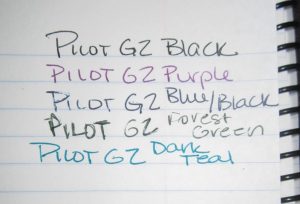 PILOT G2 Black
PILOT G2 Purple
PILOT G2 Blue/Black
PILOT G2 Forest Green
PILOT G2 Dark Teal